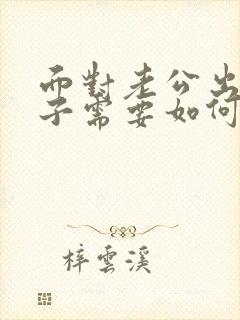 而對老公出
子需要如何
梓雲溪